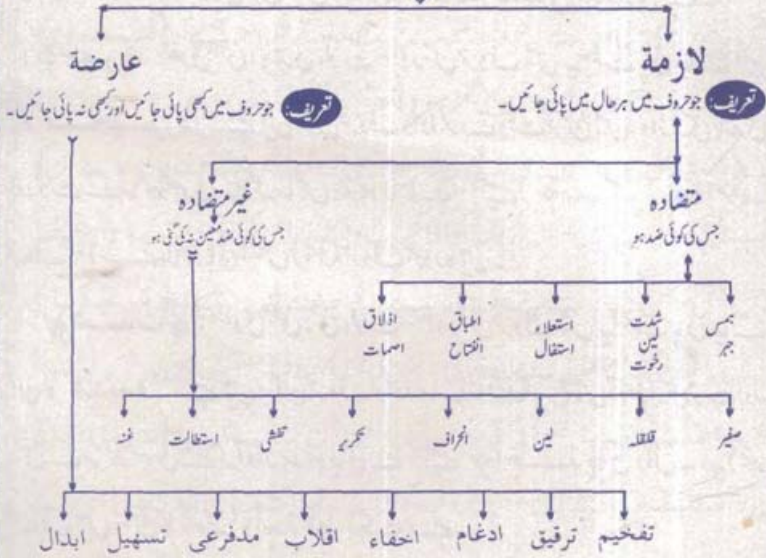 لازمة
تعریف: جو حروف میں ہر حال میں پائی جائیں۔
عارضة
تعریف: جو حروف میں کبھی پائی جائیں اور کبھی نہ پائی جائیں۔
متضادہ
جس کی کوئی ضد ہو
غیر متضادہ
جس کی کوئی ضد معین نہ کی گئی ہو
ہمس
جہر
شدت
لین
رخوت
استعلاء
استفال
اطباق
انفتاح
اذلاق
اصمات
صفیر
قلقلہ
لین
انحراف
تکریر
تفشی
استطالت
غنہ
تفخیم
ترقیق
ادغام
اخفاء
اقلاب
مدفرعی
تسهیل
ابدال